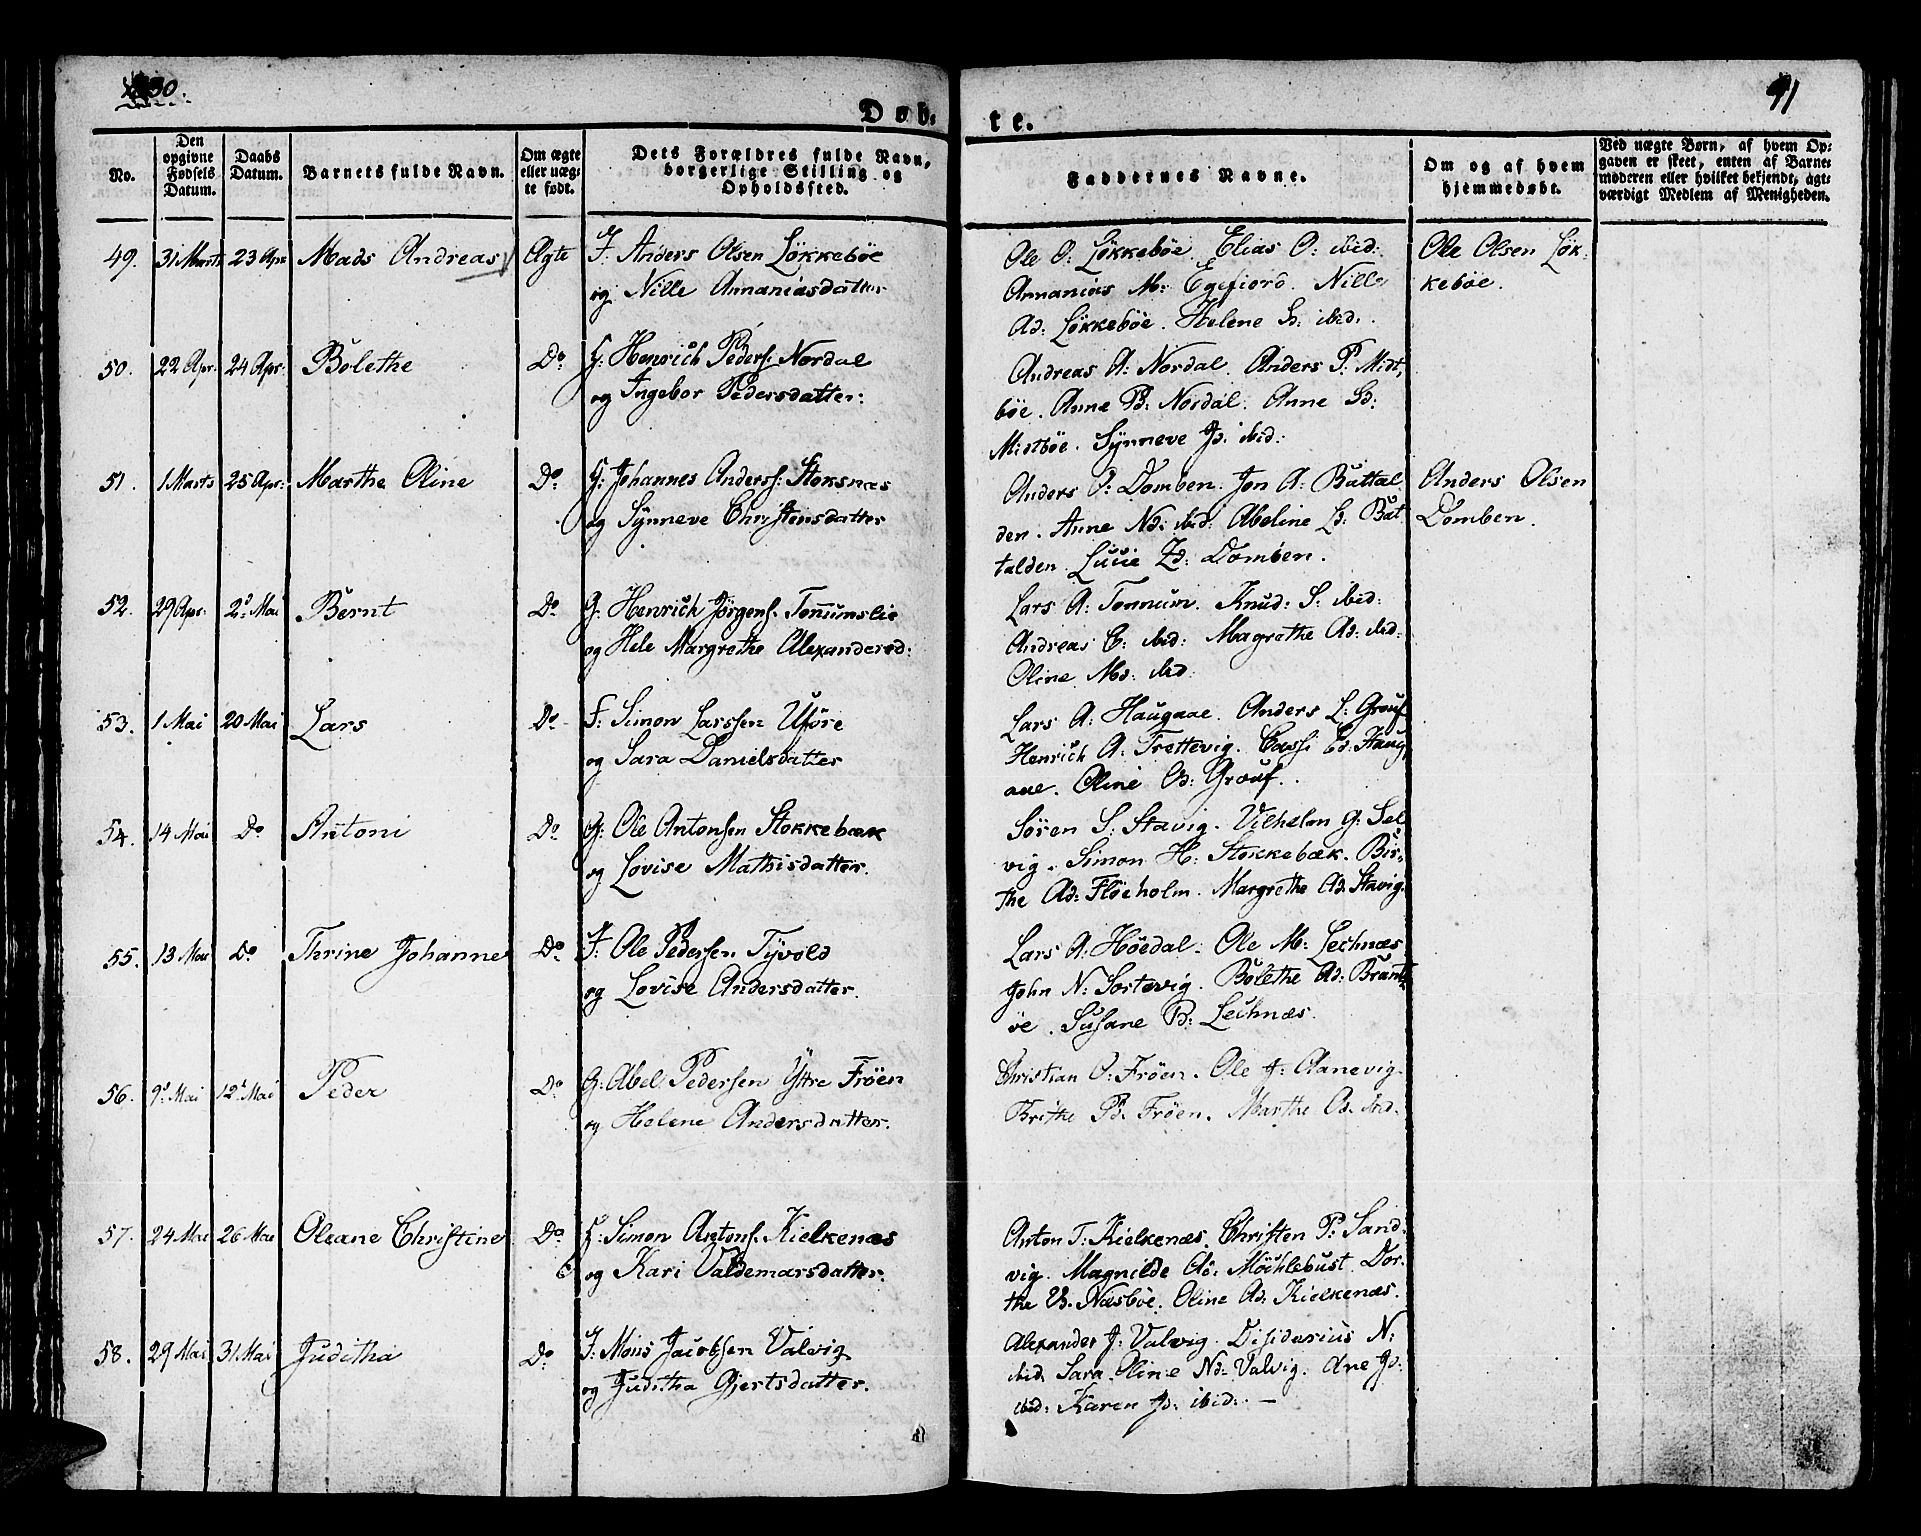 1830.
91
Døb-
te.
No.
Den opgivne Fødsels Datum.
Daabs Datum.
Barnets fulde Navn.
Om ægte eller uægte født.
Dets Forældres fulde Navn, borgerlige Stilling og Opholdssted.
Faddernes Navne.
Om og af hvem hjemmedøbt.
Ved uægte Børn, af hvem Opgaven er skeet, enten af Barnemoderen eller hvilket bekjendt, agtværdigt Medlem af Menigheden.
49. 31 Marts 23 Apr Mads Andreas Ægte F: Anders Olsen Løkkebøe
og Nille Annaniasdatter
Ole O: Løkkebøe. Elias O: ibid:
Annanias M: Egefiord. Nille
Ad: Løkkebøe. Helene Sd: ibid:.
Ole Olsen Løk-
kebøe.
50. 22 Apr. 24 Apr: Bolethe Do G: Henrich Peders. Nordal
og Ingebor Pedersdatter:
Andreas A: Nordal. Anders P: Midt-
bøe. Anne Pd: Nordal. Anne Sd:
Midtbøe. Synneve Jd: ibid:
51. 1 Marts 25 Apr: Marthe Oline Do: G: Johannes Anders: Stoksnæs
og Synneve Christensdatter
Anders O: Domben. Jon A: Battal
den. Anne Nd: ibid: Abeline Ld: Bat
talden. Lucie Zd: Domben.
Anders Olsen
Domben.
52. 29 Apr: 2d Mai Bernt Do G: Henrich Jørgens. Tonnumslie
og Hele Margrethe Alexandersd:
Lars A: Tonnum. Knud: S: ibid:
Andreas C: ibid: Magrethe Ad: ibid:
Oline Md: ibid:
53. 1 Mai 20 Mai Lars Do F: Simon Larssen Uføre
og Sara Danielsdatter
Lars A: Haugaae. Anders L: Grouf
Henrich A: Trettevig. Cassi Ed: Haug
aae. Oline Od: Grouf.
54. 14 Mai Do Antoni Do G: Ole Antonsen Stokkebæk
og Lovise Mathisdatter.
Søren S: Stavig. Vilhelm G: Sel
vig. Simon H: Stokkebæk. Bir-
the Ad: Fløeholm. Margrethe Ad. Stavig.
55. 13 Mai Do Thrine Johanne Do. F: Ole Pedersen Tyvold
og Lovise Andersdatter.
Lars A: Høedal. Ole M: Lechnæs
John N: Sortevig. Bolethe Ad: Brant
øe. Susane Pd: Lechnæs.
56. 9d Mai 12t Mai Peder Do G: Abel Pedersen Yttre Frøen
og Helene Andersdatter.
Christian O: Frøen. Ole J: Aanevig.
Brithe Pd. Frøen. Marthe Od. ibid.
57. 24 Mai 26 Mai Oleane Christine Do G: Simon Antons. Kielkenæs
og Kari Valdemarsdatter.
Anton T: Kielkenæs. Christen P: Sand-
vig. Magnilde Ad: Møchlebust. Dor-
the Vd. Næsbøe. Oline Ad: Kielkenæs.
58. 29 Mai 31 Mai Juditha Do: J: Mons Jacobsen Valvig
og Juditha Gjertsdatter.
Alexander J: Valvig. Disiderius N:
ibid. Sara Oline Nd: Valvig. Ane Jd:
ibid: Karen Jd: ibid: —